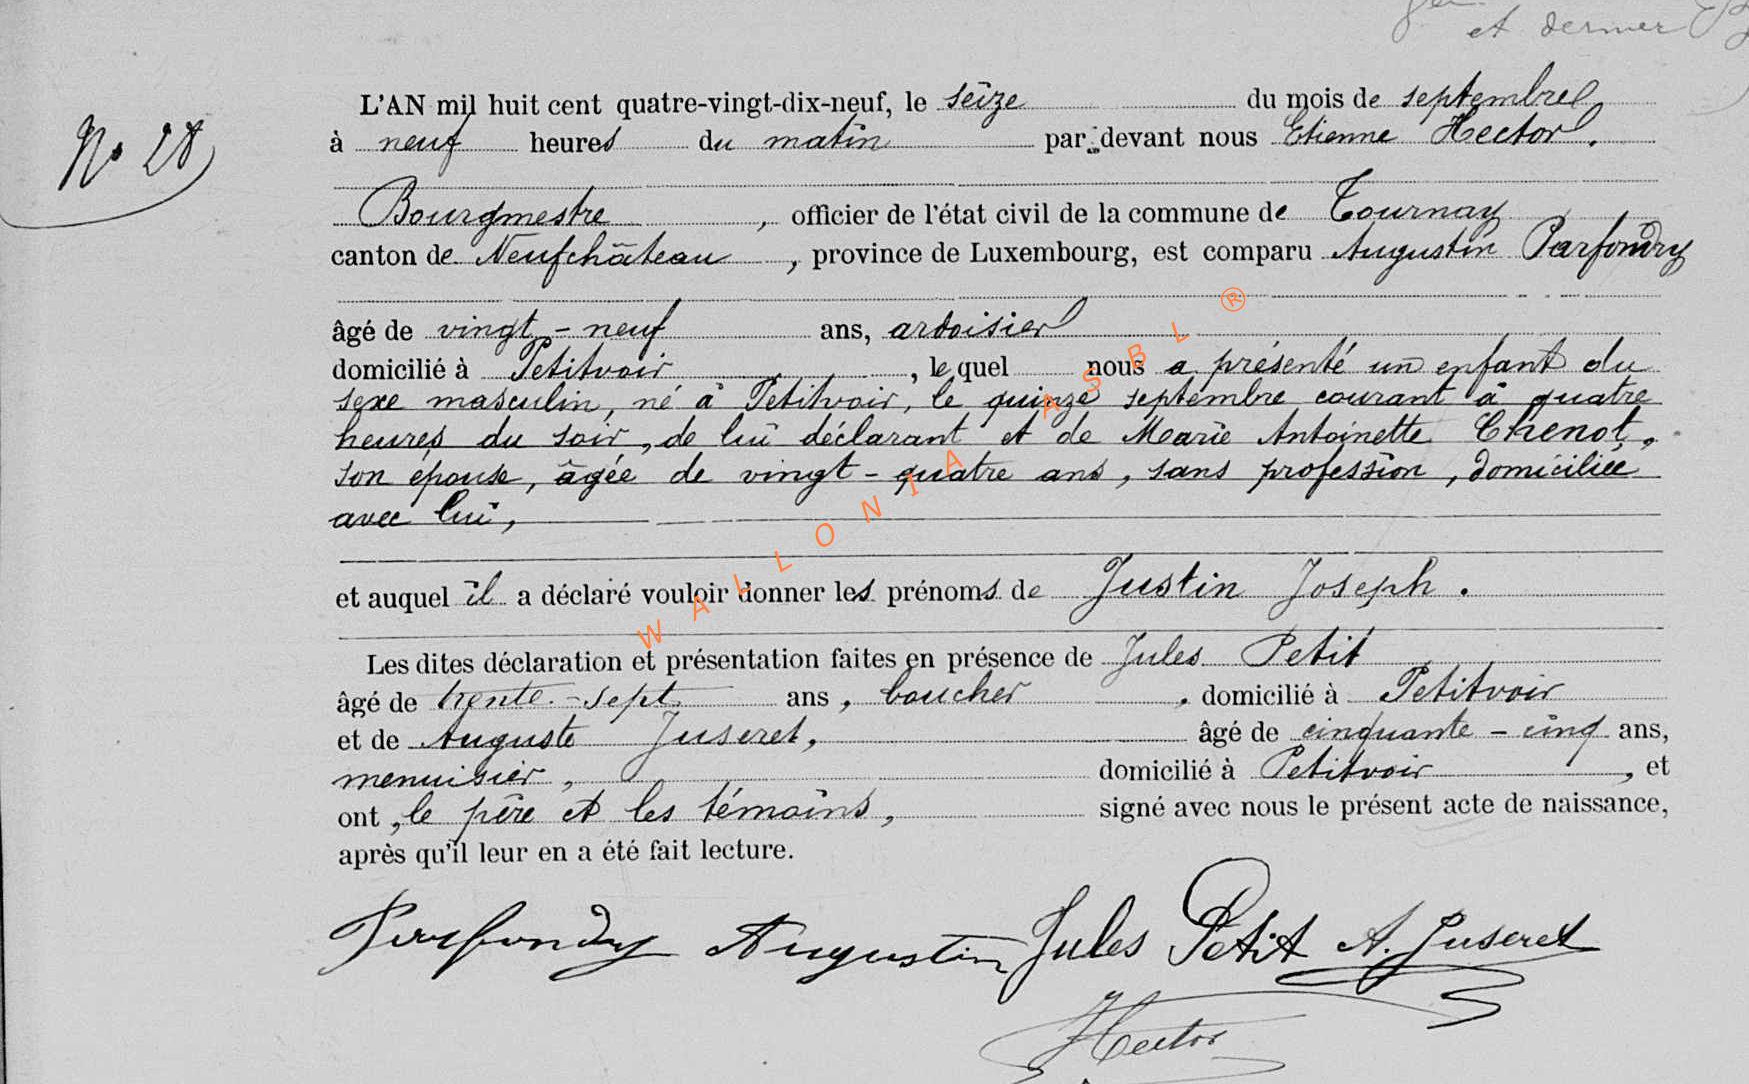 et dernier
L'AN mil huit cent quatre-vingt-dix-neuf, le seize du mois de septembre
N° 28
à neuf heures du matin par devant nous Etienne Hector.
Bourgmestre, officier de l'état civil de la commune de Tournay
canton de Neufchâteau, province de Luxembourg, est comparu Augustin Parfondry
âgé de vingt-neuf ans, ardoisier
domicilié à Petitvoir, lequel nous a présenté un enfant du
sexe masculin, né à Petitvoir, le quinze septembre courant à quatre
heures du soir, de lui déclarant et de Marie Antoinette Chenot,
son épouse, âgée de vingt-quatre ans, sans profession, domiciliée
avec lui,
et auquel il a déclaré vouloir donner les prénoms de Justin Joseph.
Les dites déclaration et présentation faites en présence de Jules Petit
âgé de trente-sept ans, boucher, domicilié à Petitvoir
et de Auguste Juseret, âgé de cinquante-cinq ans,
menuisier, domicilié à Petitvoir, et
ont, le père et les témoins, signé avec nous le présent acte de naissance,
après qu'il leur en a été fait lecture.
Parfondry Augustin Jules Petit A. Juseret
Hector
WALLONIA ASBL ®